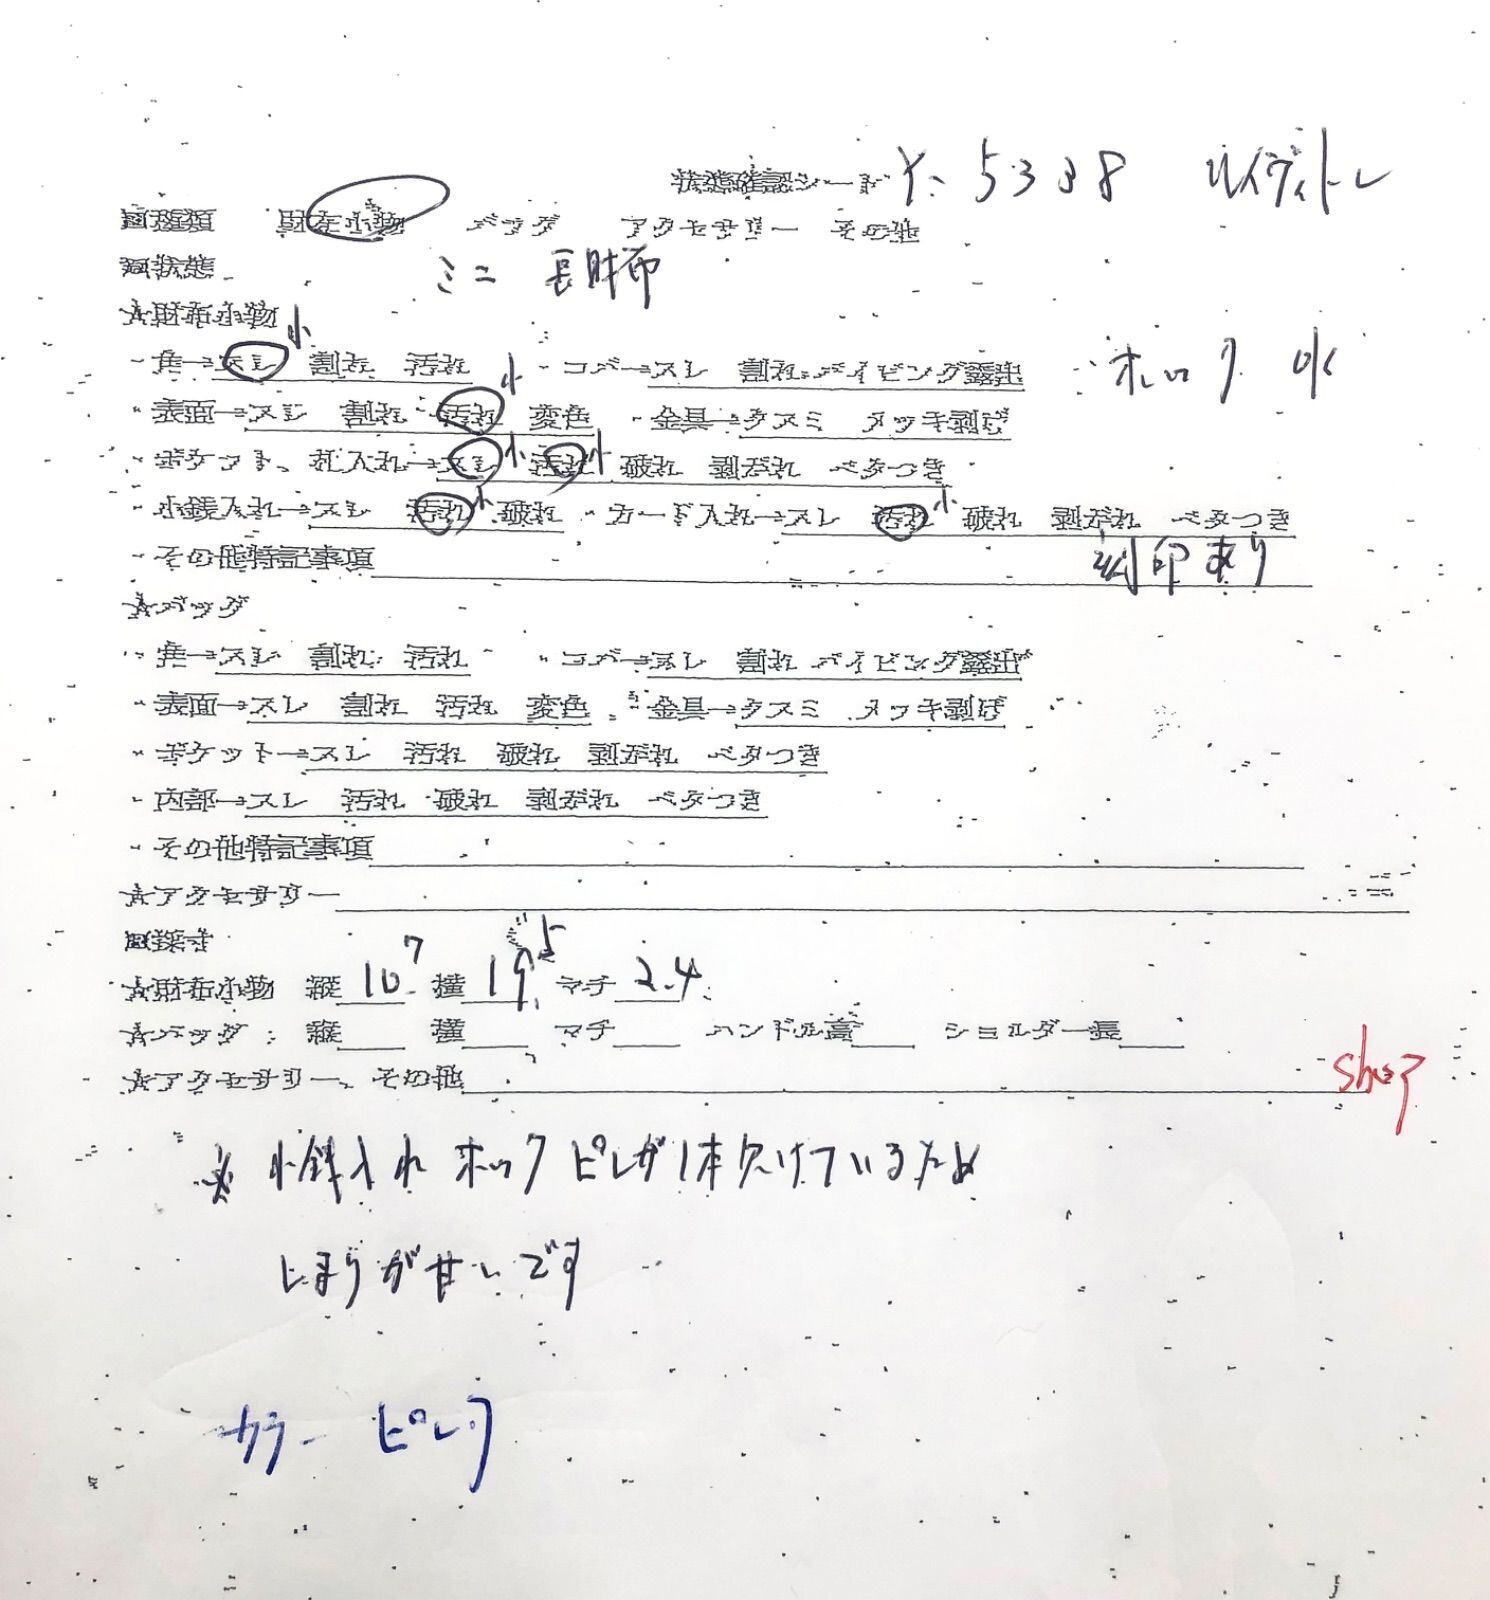 状態確認シート Y-5338 ルイヴィトン
■種類 財布小物 バッグ アクセサリー その他
■状態 ミニ 長財布
★財布小物
・角→スレ 小 割れ 汚れ ・コバ→スレ 割れ パイピング露出 ホック 小
・表面→スレ 割れ 汚れ 小 変色 ・金具→クスミ メッキ剥げ
・ポケット、札入れ→スレ 小 汚れ 小 破れ 剥がれ ベタつき
・小銭入れ→スレ 汚れ 小 破れ ・カード入れ→スレ 汚れ 小 破れ 剥がれ ベタつき
・その他特記事項 刻印あり
★バッグ
・角→スレ 割れ 汚れ ・コバ→スレ 割れ パイピング露出
・表面→スレ 割れ 汚れ 変色 ・金具→クスミ メッキ剥げ
・ポケット→スレ 汚れ 破れ 剥がれ ベタつき
・内部→スレ 汚れ 破れ 剥がれ ベタつき
・その他特記事項
★アクセサリー
■採寸
★財布小物 縦 10.7 横 19.5 マチ 2.4
★バッグ 縦 横 マチ ハンドル高 ショルダー長
★アクセサリー、その他
※小銭入れ ホック ピンが1本欠けているため
しまりが甘いです
カラー ピンク